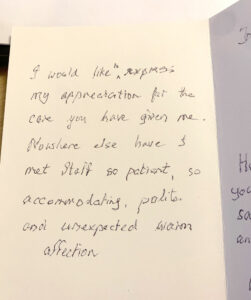 I would like to express
my appreciation for the
care you have given me.
Nowhere else have I
met staff so patient, so
accommodating, polite
and unexpected warm
affection